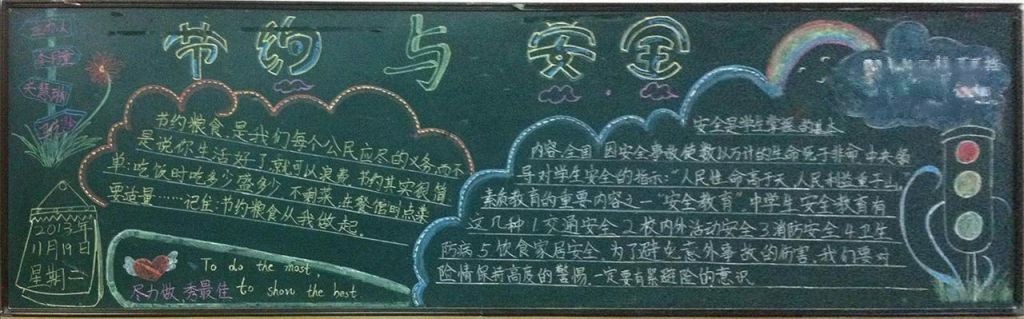 节约与安全
节约粮食,是我们每个公民应尽的义务,而不
是说你生活好了就可以浪费.节约其实很简
单:吃饭时吃多少盛多少,不剩菜,在餐馆时点菜
要适量……记住:节约粮食从我做起.
2013年
11月19日
星期二
To do the most
尽力做 秀最佳 to show the best
安全是学生掌握的基本
内容,全国因安全事故使数以万计的生命死于非命.中央领
导对学生安全的指示:"人民生命高于天,人民利益重于山."
素质教育的重要内容之一"安全教育".中学生安全教育有
这几种1.交通安全2.校内外活动安全3.消防安全4.卫生
防病5.饮食家居安全.为了避免意外事故的伤害,我们要对
险情保持高度的警惕,一定要有避险的意识.